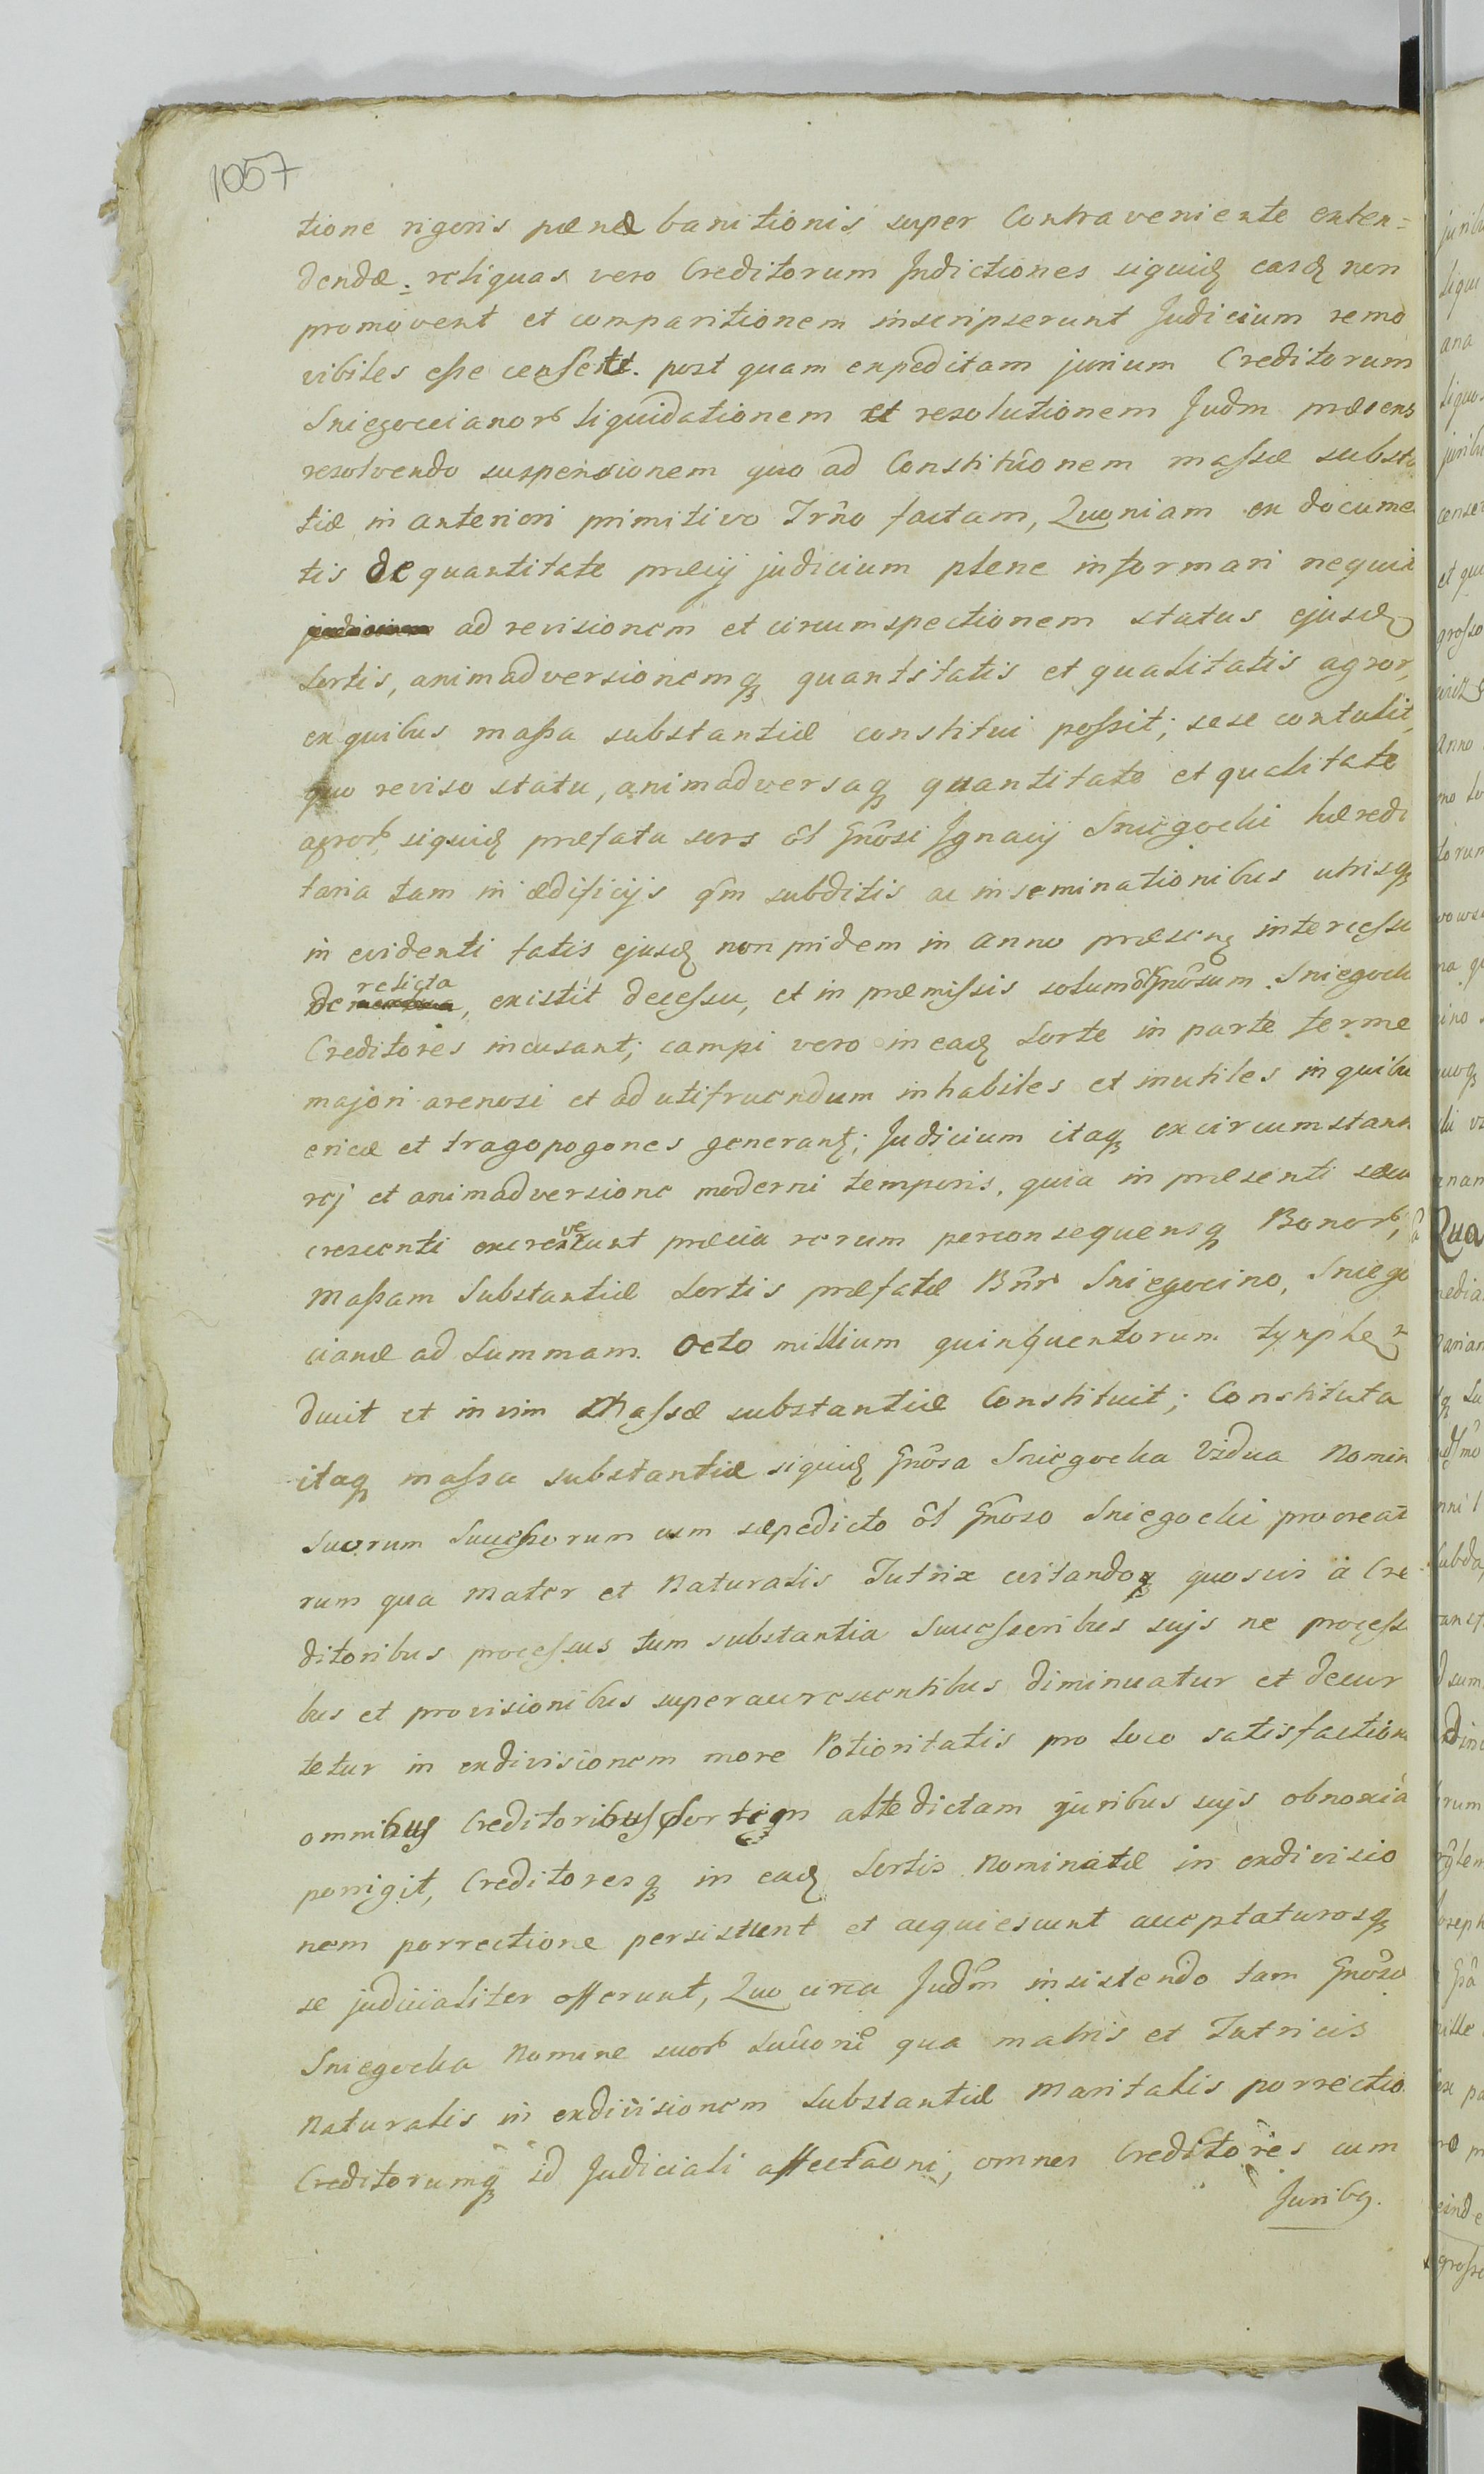 1057
tione rigoris pænæ banitionis super Contraveniente exten=
dendæ. reliquas vero Creditorum Indictiones siquidꝫ easdꝫ non
promovent et comparitionem inscripserunt Judicium remo
vibiles eſse censent. post quam expeditam jurium Creditorum
Sniegoccianorꝝ liquidationem et resolutionem Judm præsens
resolvendo suspensionem quo ad Constitûonem maſsæ substa
tiæ in anteriori primitivo Trn̂o factam, Quoniam ex docume
tis de quantitate præcij judicium plene informari nequit
ad revisionem et circumspectionem status ejusdꝫ
Sortis, animadversionemqꝫ quantitatis et qualitatis agror,
ex quibus maſsa substantiæ constitui poſsit; sese contulit,
quo reviso statu, animadversaqꝫ quantitate et qualitate
agrorꝝ, siquidꝫ præfata sors ôl Gn̂osi Ignacij Sniegocki hæredi
taria tam in ædificijs qm̂ subditis ac inseminationibus utrisqꝫ
in evidenti fatis ejusdꝫ non pridem in anno præsenꝫ interceſsu
de relicta, existit deceſsu, et in præmiſsis solum ôl Gn̂osum Sniegocki
Creditores incusant; campi vero in eadꝫ Sorte in parte ferme
majori arenosi et ad utifruendum inhabiles et inutiles in quibu
ericæ et tragopogones generantꝫ; Judicium itaqꝫ ex circumstann
rej et animadversione moderni temporis, quia in præsenti sæcu
crescenti excreverunt præcia rerum per consequensqꝫ Bonorꝝ,
Maſsam Substantiæ Sortis præfatæ Bn̂rꝝ Sniegocino, Sniego
cianæ ad Summam Octo millium quinquentorum tynpheꝫ
ducit et in vim Maſsæ substantiæ Constituit; Constituta
itaqꝫ maſsa substantiæ siquidꝫ Gn̂osa Sniegocka Vidua Nomin
Suorum Succeſsorum cum sæpedicto ôl Gn̂oso Sniegocki procreat
rum qua Mater et Naturalis Tutrix evitandoqꝫ quosvis a Cre
ditoribus proceſsus tum substantia Succeſsoribus sujs ne proceſsi
bus et provisionibus superaccrescentibus diminuatur et decur
tetur in exdivisionem more Potioritatis pro loco satisfaction
omnibus Creditoribus Sortem alte dictam juribus sujs obnoxia
porrigit, Creditoresqꝫ in eadꝫ Sortis Nominatæ in exdivisio
nem porrectione persistunt et acquiescunt acceptaturosqꝫ
se judicialiter offerunt, Quo circa Judm̂ insistendo tam Gn̂oso
Sniegocka Nomine suorꝝ qua matris et Tutricis
Naturalis in exdivisionem Substantiæ Maritalis porrectio
Creditorumqꝫ id Judiciali affectâoni, omnes Creditores cum
Juribꝫ.